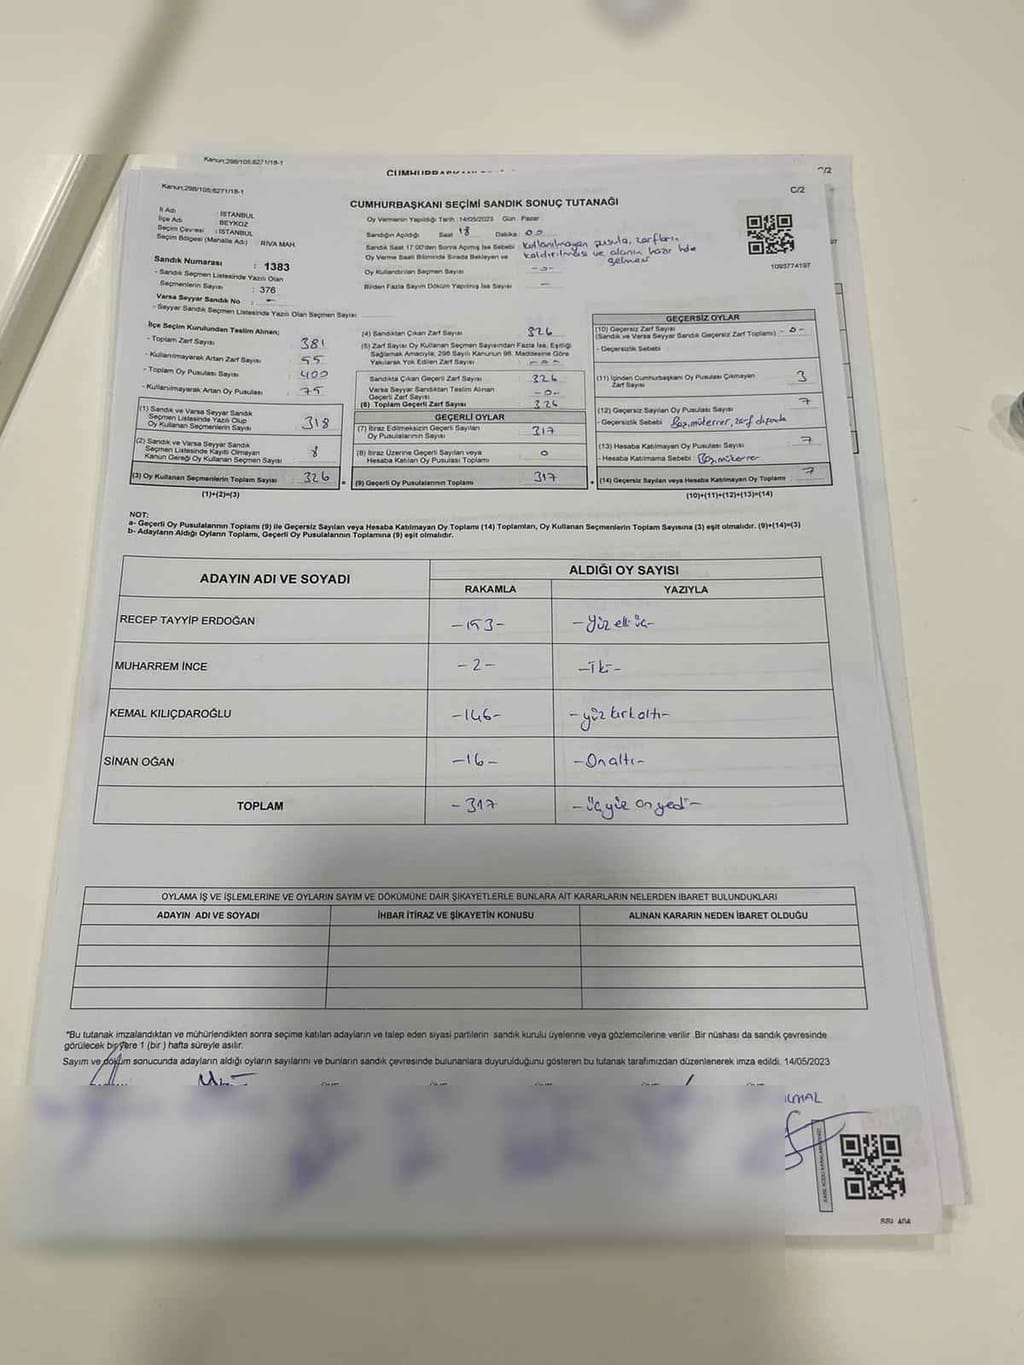 Kanun;298/105;6271/18-1
C/2
Kanun;298/105;6271/18-1
C/2
CUMHURBAŞKANI SEÇİMİ SANDIK SONUÇ TUTANAĞI
İl Adı : İSTANBUL
İlçe Adı : BEYKOZ
Seçim Çevresi : İSTANBUL
Seçim Bölgesi (Mahalle Adı) RİVA MAH.
Oy Vermenin Yapıldığı Tarih :14/05/2023 Gün : Pazar
Sandığın Açıldığı Saat 18 Dakika : 00
Sandık Saat 17:00'den Sonra Açılmış İse Sebebi : Kullanılmayan pusula, zarfların
Oy Verme Saati Bitiminde Sırada Bekleyen ve kaldırılması ve alanın hazır
Oy Kullandırılan Seçmen Sayısı gelmesi
-0-
Birden Fazla Sayım Döküm Yapılmış İse Sayısı : —
1093774197
Sandık Numarası : 1383
- Sandık Seçmen Listesinde Yazılı Olan
Seçmenlerin Sayısı : 376
Varsa Seyyar Sandık No : -
- Seyyar Sandık Seçmen Listesinde Yazılı Olan Seçmen Sayısı
İlçe Seçim Kurulundan Teslim Alınan;
- Toplam Zarf Sayısı 381
- Kullanılmayarak Artan Zarf Sayısı 55
- Toplam Oy Pusulası Sayısı 400
- Kullanılmayarak Artan Oy Pusulası 75
(1) Sandık ve Varsa Seyyar Sandık
Seçmen Listesinde Yazılı Olup
Oy Kullanan Seçmenlerin Sayısı 318
(2) Sandık ve Varsa Seyyar Sandık
Seçmen Listesinde Kayıtlı Olmayan
Kanun Gereği Oy Kullanan Seçmen Sayısı 8
(3) Oy Kullanan Seçmenlerin Toplam Sayısı 326
(1)+(2)=(3)
(4) Sandıktan Çıkan Zarf Sayısı 326
(5) Zarf Sayısı Oy Kullanan Seçmen Sayısından Fazla İse, Eşitliği
Sağlamak Amacıyla, 298 Sayılı Kanunun 98. Maddesine Göre
Yakılarak Yok Edilen Zarf Sayısı
Sandıkta Çıkan Geçerli Zarf Sayısı 326
Varsa Seyyar Sandıktan Teslim Alınan
Geçerli Zarf Sayısı -0-
(6) Toplam Geçerli Zarf Sayısı 326
GEÇERLİ OYLAR
(7) İtiraz Edilmeksizin Geçerli Sayılan
Oy Pusulalarının Sayısı 317
(8) İtiraz Üzerine Geçerli Sayılan veya
Hesaba Katılan Oy Pusulası Toplamı 0
(9) Geçerli Oy Pusulalarının Toplamı 317
GEÇERSİZ OYLAR
(10) Geçersiz Zarf Sayısı
(Sandık ve Varsa Seyyar Sandık Geçersiz Zarf Toplamı) -0-
- Geçersizlik Sebebi
(11) İçinden Cumhurbaşkanı Oy Pusulası Çıkmayan
Zarf Sayısı 3
(12) Geçersiz Sayılan Oy Pusulası Sayısı 7
- Geçersizlik Sebebi
(13) Hesaba Katılmayan Oy Pusulası Sayısı 7
- Hesaba Katılmama Sebebi
(14) Geçersiz Sayılan veya Hesaba Katılmayan Oy Toplamı 7
(10)+(11)+(12)+(13)=(14)
NOT:
a- Geçerli Oy Pusulalarının Toplamı (9) ile Geçersiz Sayılan veya Hesaba Katılmayan Oy Toplamı (14) Toplamları, Oy Kullanan Seçmenlerin Toplam Sayısına (3) eşit olmalıdır. (9)+(14)=(3)
b- Adayların Aldığı Oyların Toplamı, Geçerli Oy Pusulalarının Toplamına (9) eşit olmalıdır.
ADAYIN ADI VE SOYADI
ALDIĞI OY SAYISI
RAKAMLA YAZIYLA
RECEP TAYYİP ERDOĞAN -153- -Yüz elli üç-
MUHARREM İNCE -2- -İki-
KEMAL KILIÇDAROĞLU -146- -yüz kırk altı-
SİNAN OĞAN -16- -On altı-
TOPLAM -317- -üç yüz on yedi-
OYLAMA İŞ VE İŞLEMLERİNE VE OYLARIN SAYIM VE DÖKÜMÜNE DAİR ŞİKAYETLERLE BUNLARA AİT KARARLARIN NELERDEN İBARET BULUNDUKLARI
ADAYIN ADI VE SOYADI İHBAR İTİRAZ VE ŞİKAYETİN KONUSU ALINAN KARARIN NEDEN İBARET OLDUĞU
*Bu tutanak imzalandıktan ve mühürlendikten sonra seçime katılan adayların ve talep eden siyasi partilerin sandık kurulu üyelerine veya gözlemcilerine verilir .Bir nüshası da sandık çevresinde
görülecek bir yere 1 (bir ) hafta süreyle asılır.
Sayım ve döküm sonucunda adayların aldığı oyların sayılarını ve bunların sandık çevresinde bulunanlara duyurulduğunu gösteren bu tutanak tarafımızdan düzenlenerek imza edildi. 14/05/2023